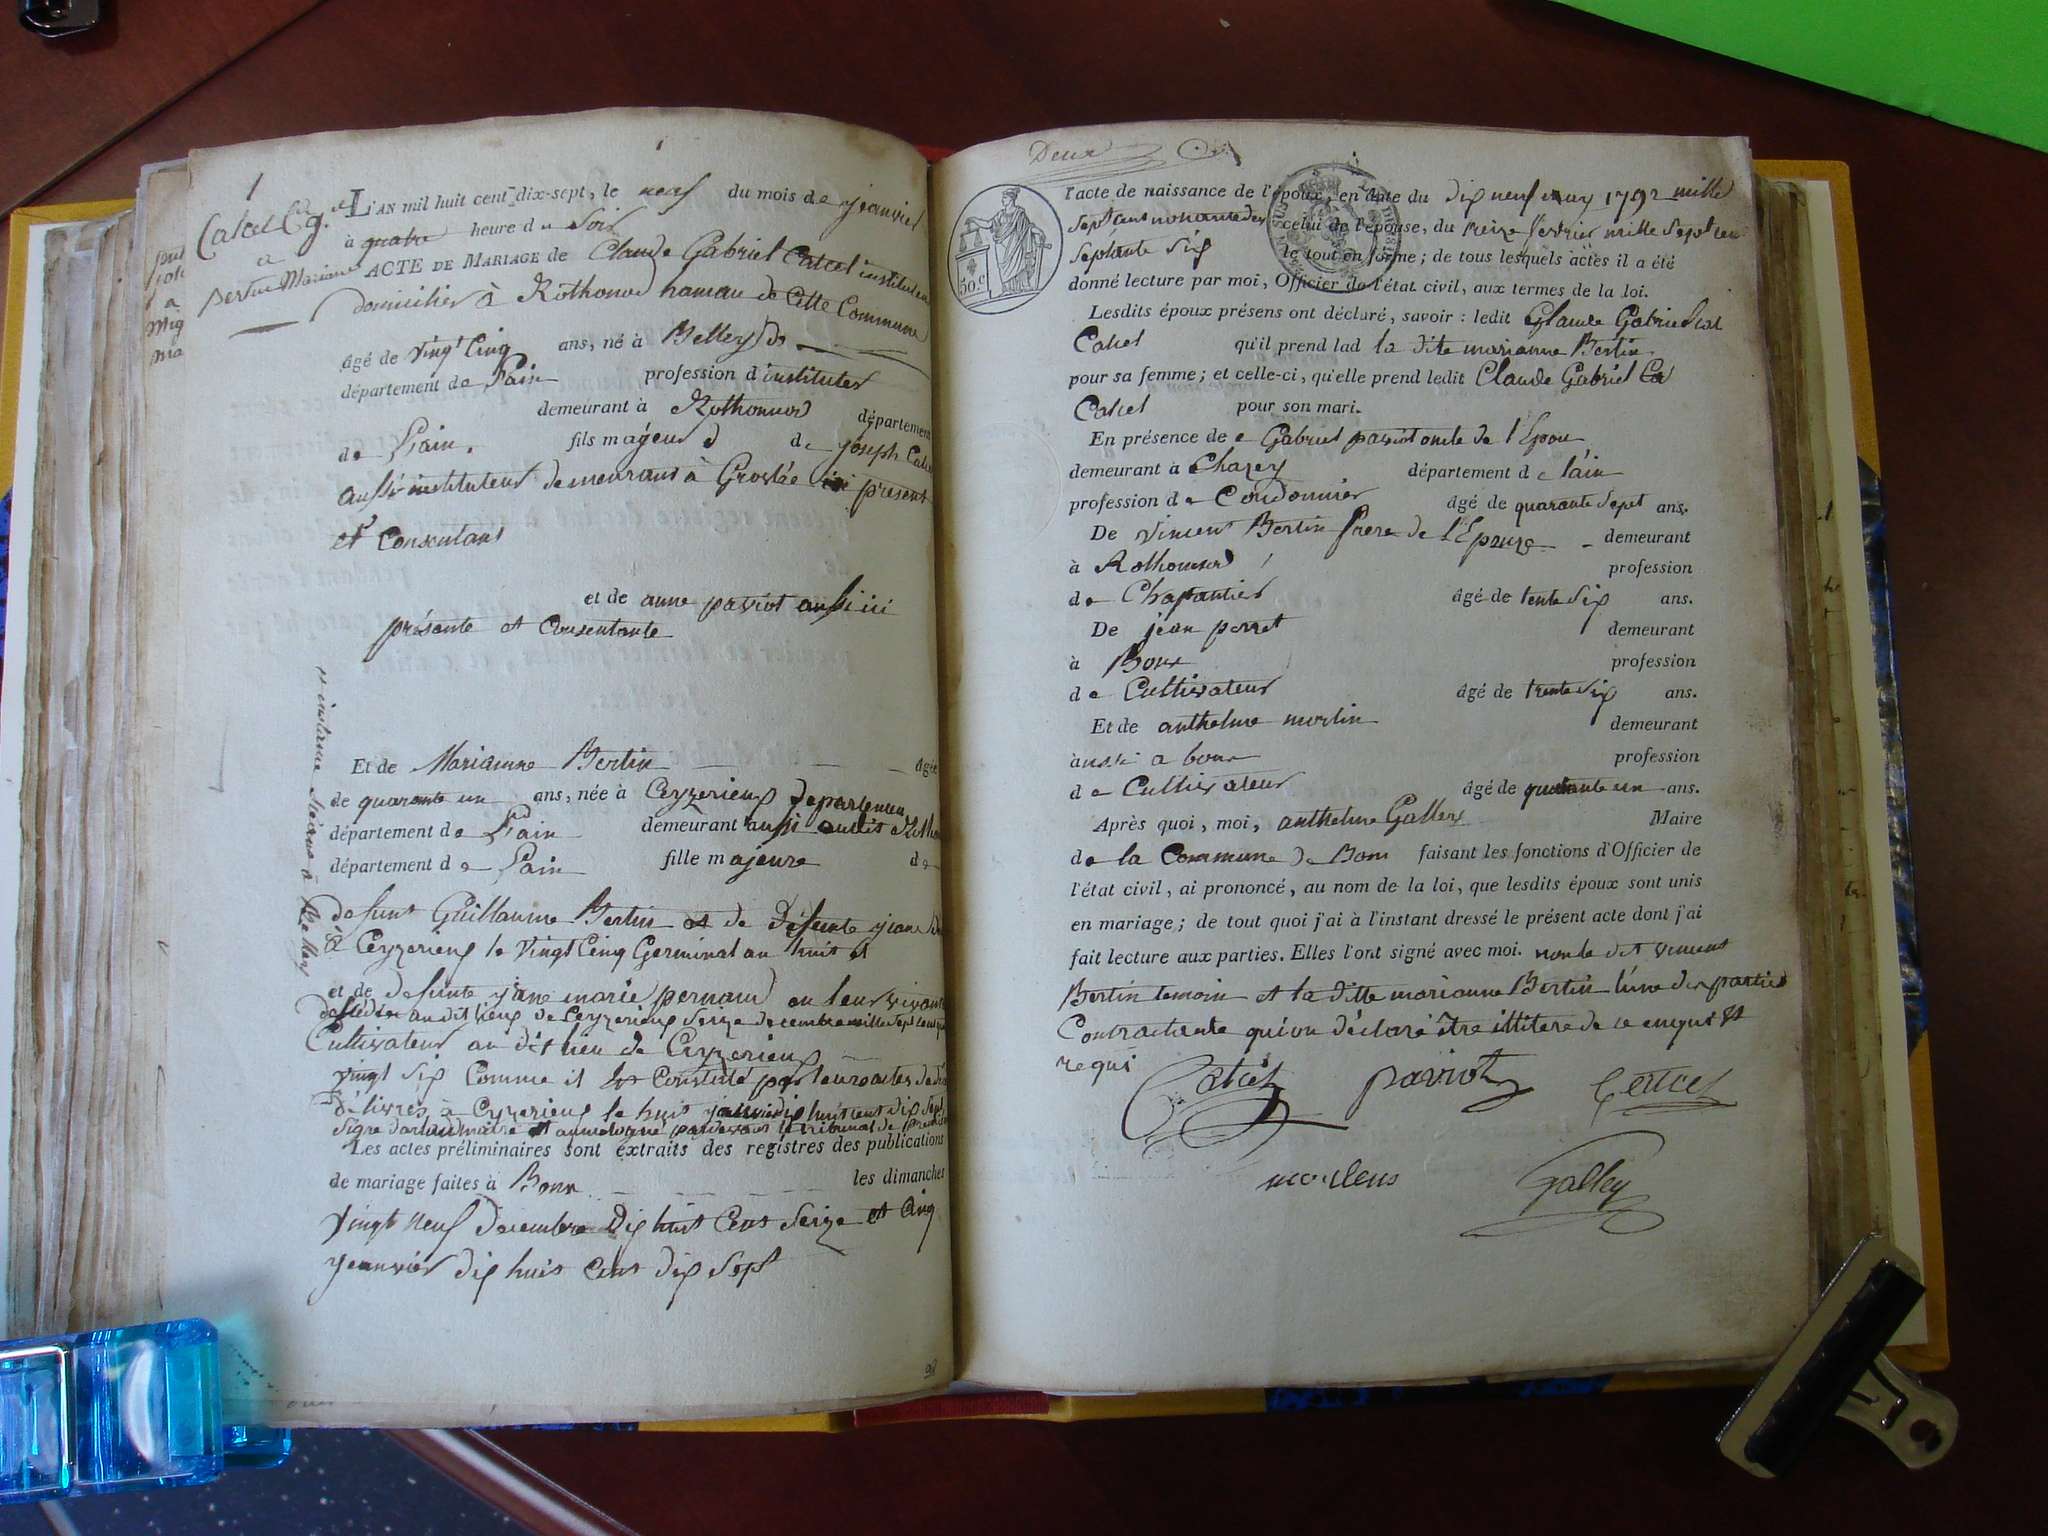 1
L'AN mil huit cent dix-sept, le neuf du mois de jeanvier
à quatre heure du Soir
Catcel C. g.el
a
Bertin Mariane
ACTE DE MARIAGE de Claude Gabriel Catcel instituteur
domicilier à Rothonod hamau de Cette Commune
âgé de vingt Cinq ans, né à Belley
département de L'ain profession d'instituteur
demeurant à Rothonnod département
de L'ain. fils mageur d de joseph Catcel
aussi instituteur demeurant à Groslée ici présent
et Consentant
et de anne paviot aussi ici
présente et Consentante
Et de Marianne Bertin âgée
de quarante un ans, née à Ceyzerieux département
département de L'ain demeurant aussi audit Rothonod
département de L'ain fille majeure de
defunt Guillaume Bertin et de Défunte
à Ceyzerieux le vingt Cinq Germinal an huit et
et de defunte jane marie pernaud en leur vivant
déscédée audit lieux de Ceyzerieux Seize decembre mille sept cent
Cultivateur au dit lieu de Ceyzerieux
vingt six Comme il Est Constaté par leur actes de
délivrés à Ceyzerieux le huit jeanvier dix huit cent dix Sept
Signé maire et pardevant le tribunal de premiere
instance Séant à Belley
Les actes préliminaires sont extraits des registres des publications
de mariage faites à Bonn les dimanches
vingt neuf decembre dix huit Cent Seize et Cinq
jeanvier dix huit Cent dix Sept
98
Deux
50.c
l'acte de naissance de l'époux, en date du dix neuf may 1792 mille
Sept cent nonante deux celui de l'épouse, du treize fevrier mille Sept cent
Septante Six le tout en forme; de tous lesquels actes il a été
donné lecture par moi, Officier de l'état civil, aux termes de la loi.
Lesdits époux présens ont déclaré, savoir: ledit Glaude Gabriel
Catcel qu'il prend lad la dite marianne Bertin
pour sa femme; et celle-ci, qu'elle prend ledit Claude Gabriel Ca
Catcel pour son mari.
En présence de e Gabriel paviot oncle de l'Epou
demeurant à Chazey département de l'ain
profession de Cordonnier âgé de quarante Sept ans.
De vincent Bertin frere de l'Epouze demeurant
à Rothonnod profession
de Chapantier âgé de tente Six ans.
De jean perret demeurant
à Bonx profession
de Cultivateur âgé de trente Six ans.
Et de anthelme morlin demeurant
aussi a bonx profession
de Cultivateur âgé de quarante un ans.
Après quoi, moi, anthelme Galley Maire
de la Commune de Bonn faisant les fonctions d'Officier de
l'état civil, ai prononcé, au nom de la loi, que lesdits époux sont unis
en mariage; de tout quoi j'ai à l'instant dressé le présent acte dont j'ai
fait lecture aux parties. Elles l'ont signé avec moi. non le dit vincent
Bertin temoin et la ditte marianne Bertin l'une des parties
Contractante qui on déclaré être illitere de ce enquis et
requi
Catcel paviot Catcel
Galley